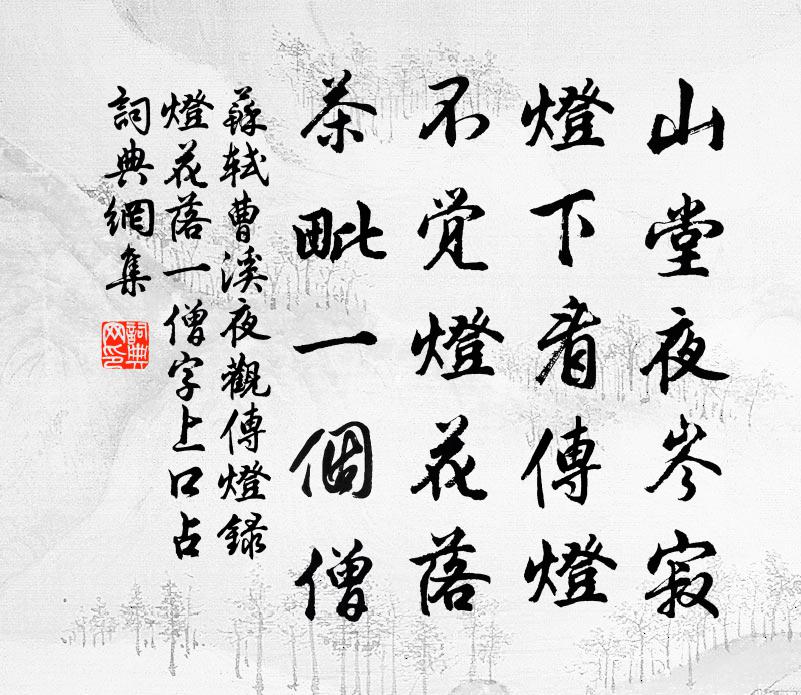 山堂夜岑寂
燈下看傳燈
不覺燈花落
茶毗一個僧
蘇軾曹溪夜觀傳燈錄
燈花落一僧字上口占
詞典網集
詞典網印